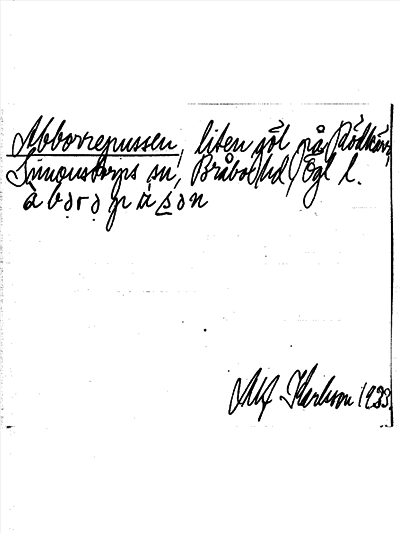 Abborrepussen, liten göl på Rödkärr,
Simonstorps sn, Bråbo hd, Ögl l.
Alf Karlson 1933.